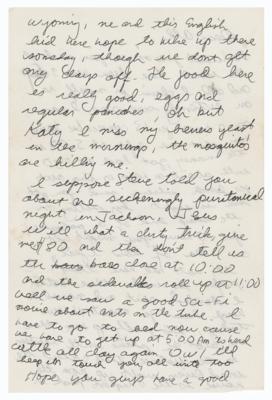 wyoming, me and this English
kid were hope to hike up there
someday, though we don't get
any days off. The food here
is really good, eggs and
regular pancakes oh but
Katy I miss my brewers yeast
in the mornings, the mosquitos
are killing me.
I suppose Steve told you
about me sickeningly puritanical
night in Jackson, Jesus
will what a dirty trick, give
me $80 and then don't tell us
the bars close at 10:00
and the sidewalks roll up at 11:00
well we saw a good Sci-Fi
movie about ants on the tube. I
have to go to bed now cause
we have to get up at 5:00 AM to herd
cattle all day again Ow! I'll
keep in touch you all into too
Hope you guys have a good